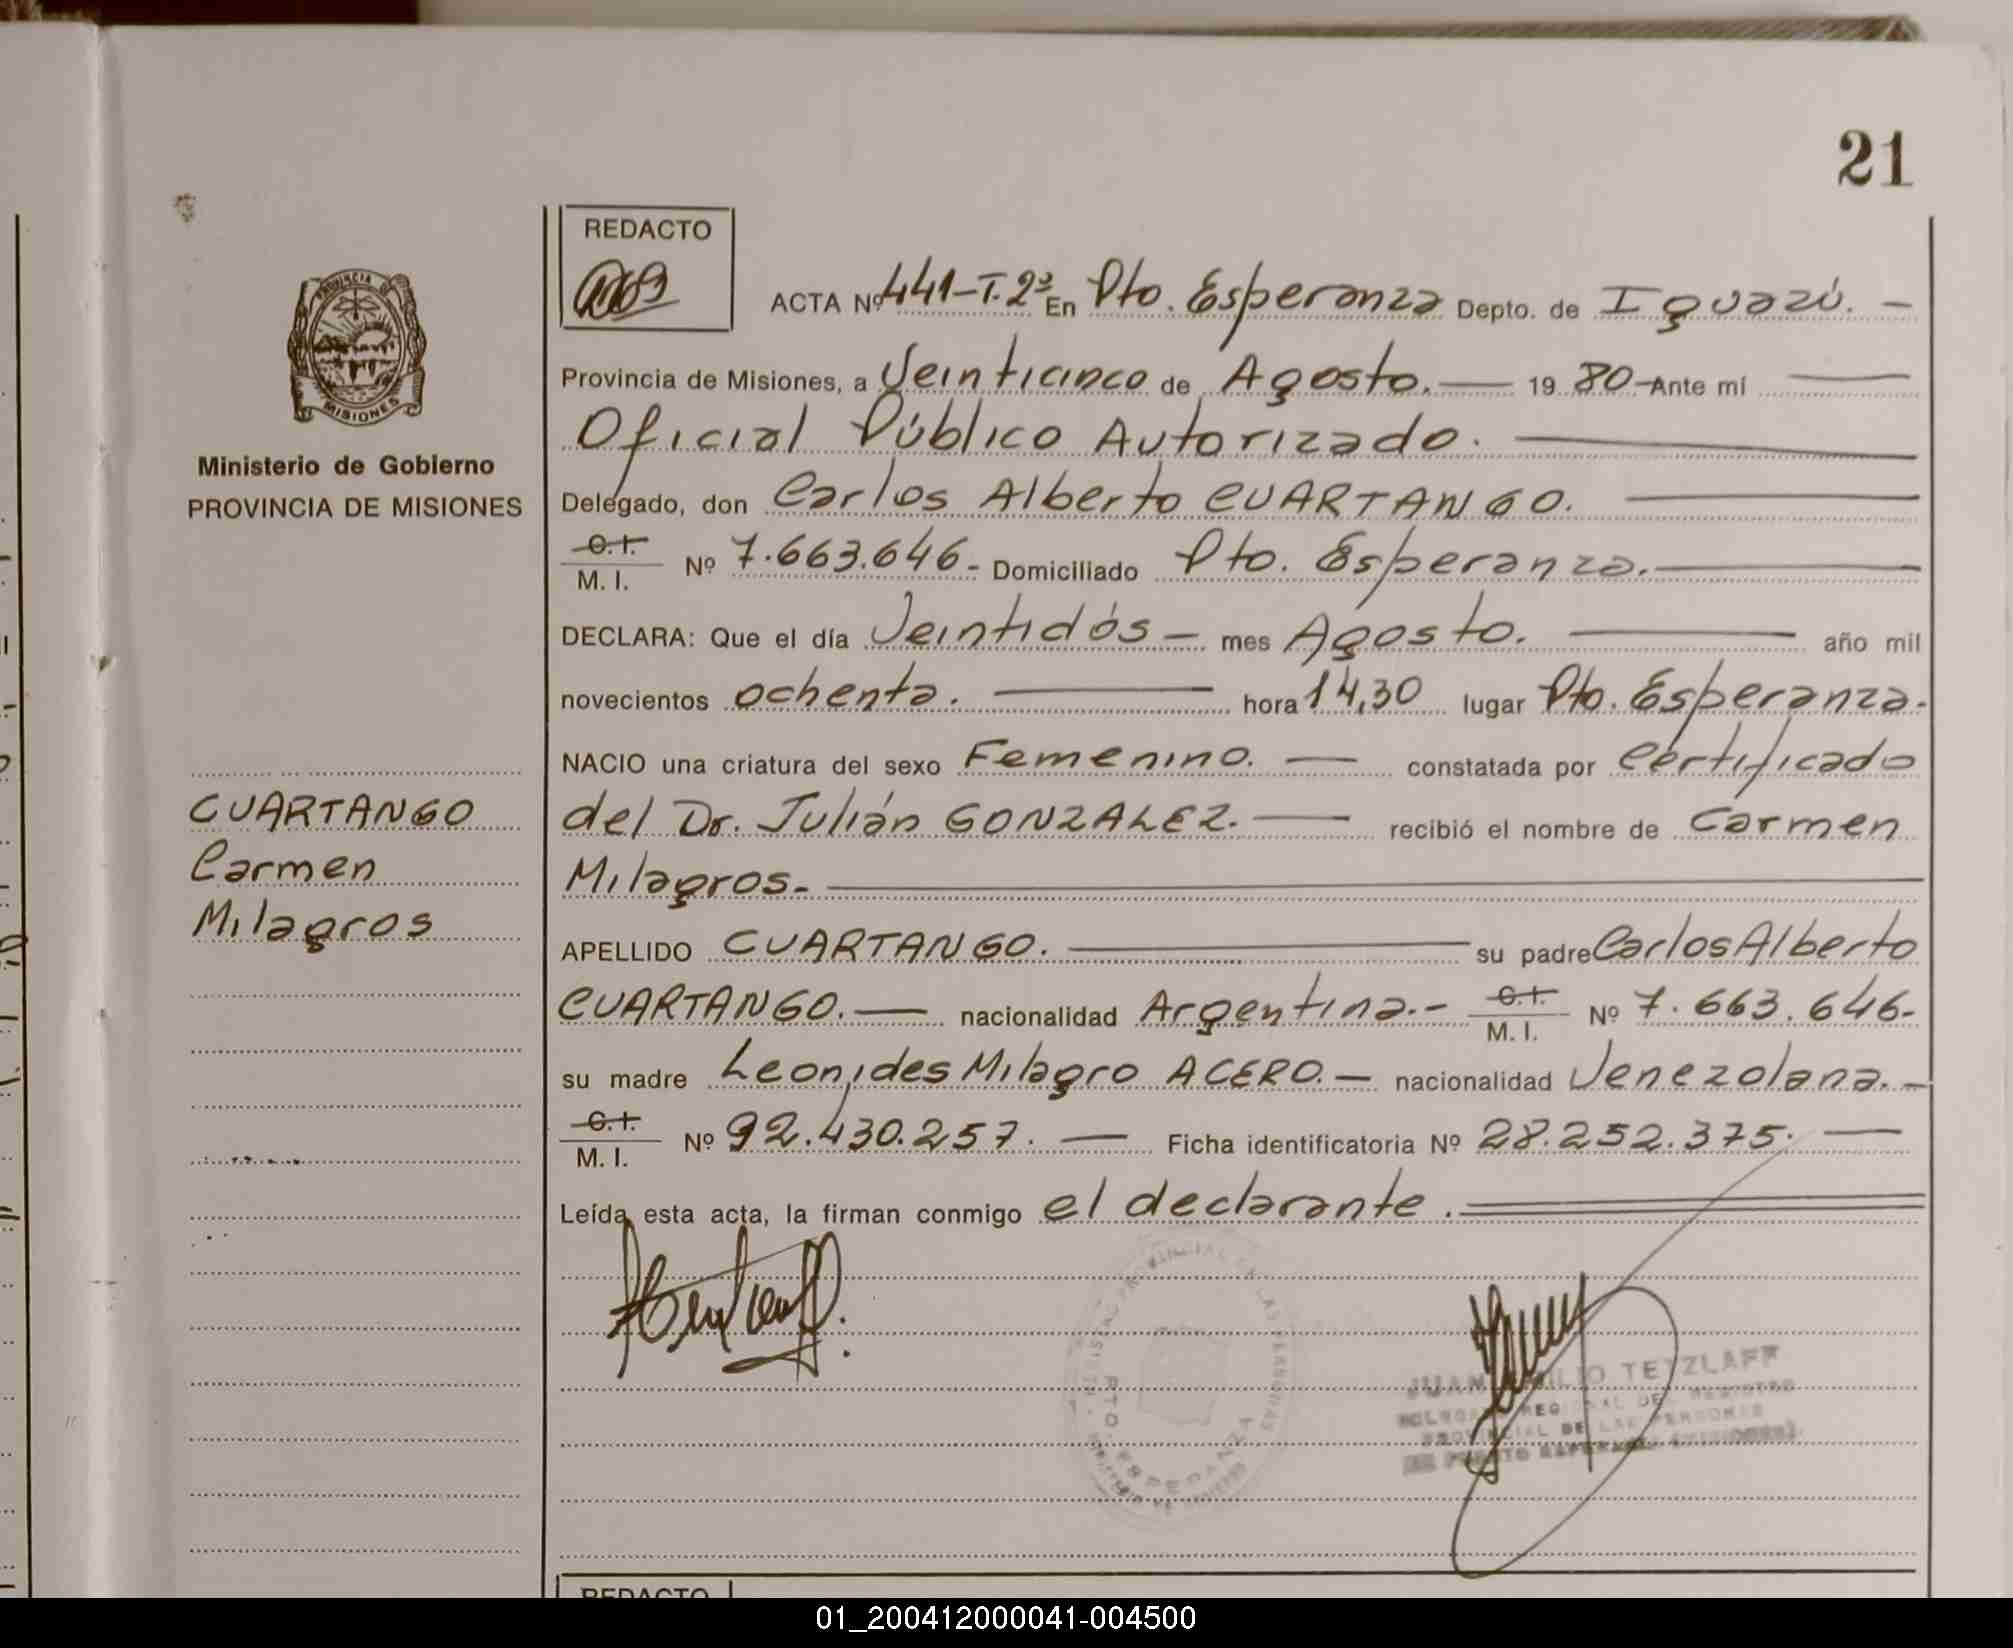 21
REDACTO
ACTA Nº 441-T.2º En Pto. Esperanza Depto. de Iguazú. -
PROVINCIA DE
MISIONES
Provincia de Misiones, a Veinticinco de Agosto. — 19 80- Ante mí —
Oficial Público Autorizado. —
Ministerio de Gobierno
PROVINCIA DE MISIONES
Delegado, don Carlos Alberto CUARTANGO. —
C. I.
M. I. Nº 7.663.646- Domiciliado Pto. Esperanza. —
DECLARA: Que el día Veintidós — mes Agosto. — año mil
novecientos ochenta. — hora 14,30 lugar Pto. Esperanza.
NACIO una criatura del sexo Femenino. — constatada por Certificado
del Dr. Julián GONZALEZ. — recibió el nombre de Carmen
Milagros. —
CUARTANGO
Carmen
Milagros
APELLIDO CUARTANGO. — su padre Carlos Alberto
CUARTANGO. — nacionalidad Argentina.- C. I.
M. I. Nº 7.663.646-
su madre Leonides Milagro ACERO. — nacionalidad Venezolana. -
C. I.
M. I. Nº 92.430.257. — Ficha identificatoria Nº 28.252.375. —
Leída esta acta, la firman conmigo el declarante.
PTO. ESPERANZA
JUAN TETZLAFF
PROVINCIAL DE LAS PERSONAS
REDACTO
01_200412000041-004500